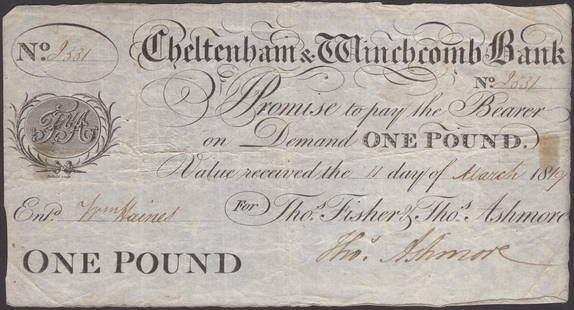 No. 2531
Cheltenham & Winchcomb Bank
No. 2531
I Promise to pay the Bearer
on Demand ONE POUND.
Value received the 11 day of March 18
Entd. Wm Haines
For Thos. Fisher & Thos. Ashmore
ONE POUND
Thos. Ashmore